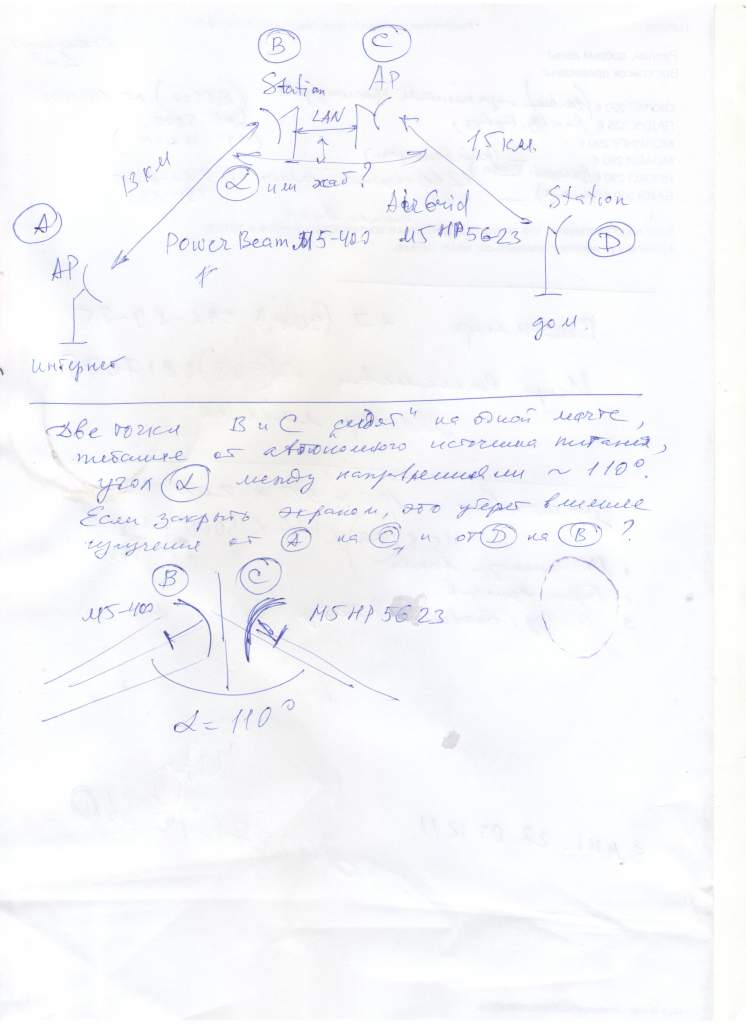 B C
Station AP
LAN
13 км 1,5 км.
α или хаб?
A AirGrid Station
AP PowerBeam M5-400 M5 HP 5G 23 D
интернет дом.
Две точки B и C "сидят" на одной мачте,
питание от автономного источника питания,
угол α между направлениями ~ 110°.
Если закрыть экраном, это уберет влияние
излучения от A на C, и от D на B ?
B C
M5-400 M5 HP 5G 23
α = 110°